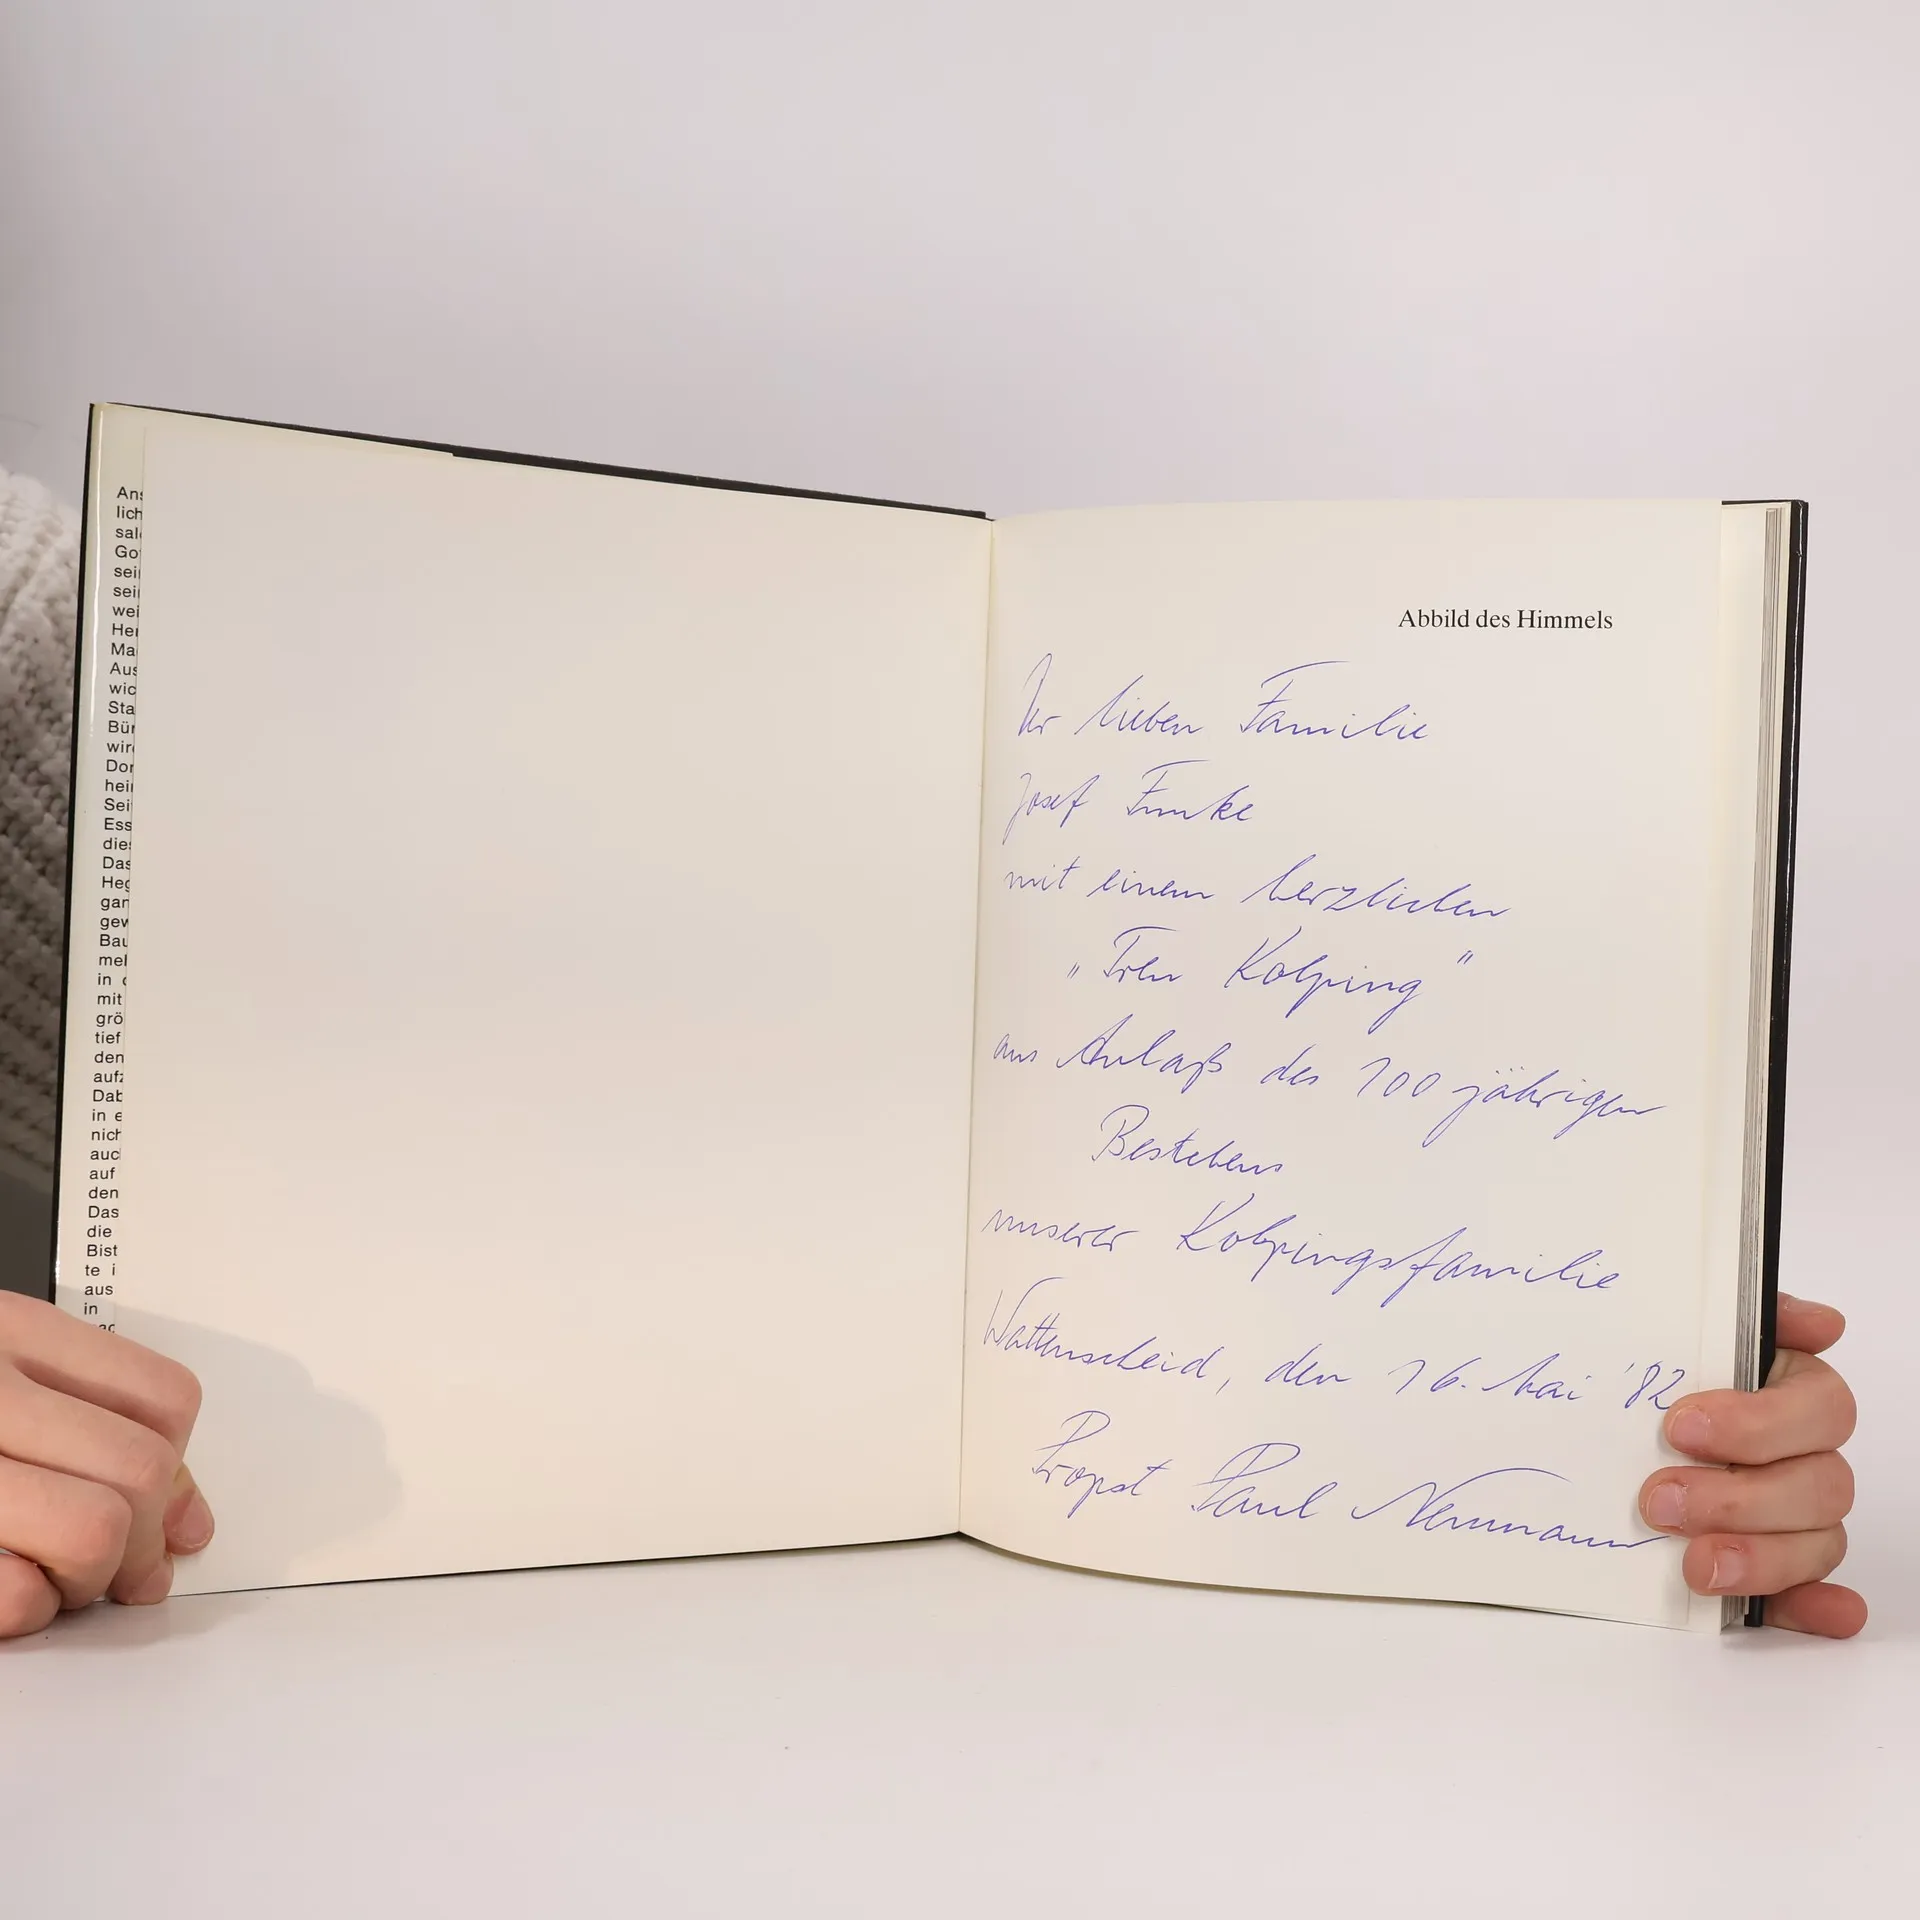 Ans
lich
sal
Go
sei
sei
wei
Her
Ma
Aus
wic
Sta
Bür
wir
Dor
hei
Seit
Ess
dies
Das
Heg
gan
gew
Bau
meh
in
mit
grö
tief
den
aufz
Dab
in e
nich
auc
auf
den
Das
die
Bist
te i
aus
in
Abbild des Himmels
Der lieben Familie
Josef Funke
mit einem herzlichen
"Treu Kolping"
aus Anlaß des 100 jährigen
Bestehens
unserer Kolpingsfamilie
Wattenscheid, den 16. Mai '82
Propst Paul Neumann